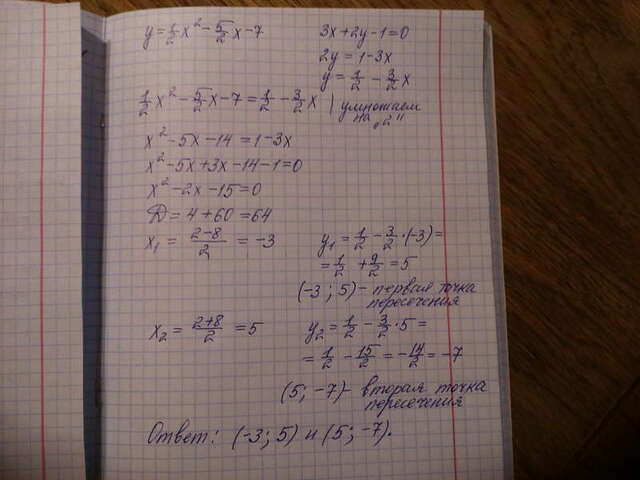 y = 1/2 x² - 5/2 x - 7    3x + 2y - 1 = 0
2y = 1 - 3x
y = 1/2 - 3/2 x
1/2 x² - 5/2 x - 7 = 1/2 - 3/2 x | умножаем
на „2"
x² - 5x - 14 = 1 - 3x
x² - 5x + 3x - 14 - 1 = 0
x² - 2x - 15 = 0
D = 4 + 60 = 64
x₁ = (2-8)/2 = -3    y₁ = 1/2 - 3/2 · (-3) =
= 1/2 + 9/2 = 5
(-3 ; 5) - первая точка
пересечения
x₂ = (2+8)/2 = 5    y₂ = 1/2 - 3/2 · 5 =
= 1/2 - 15/2 = -14/2 = -7
(5; -7) - вторая точка
пересечения
Ответ: (-3; 5) и (5; -7).